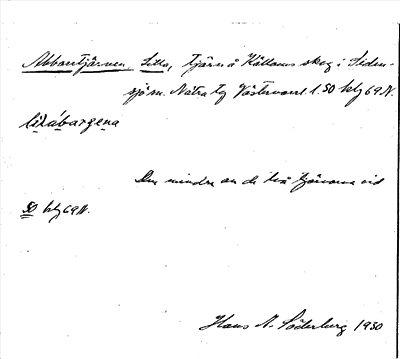 Abborrtjärnen, Lilla, tjärn å Källoms skog i Siden-
sjö sn. Nätra tg Västernorrl. l. 50 htg 69 N.
lilábargena
Den mindre av de två tjärnarna vid
50 htg 69 N.
Hans N. Söderberg 1930